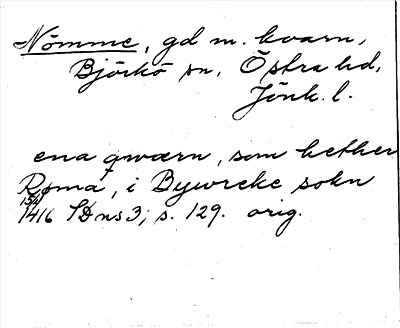 Nömme, gd m. kvarn,
Björkö sn, Östra hd,
Jönk. l.
ena qwærn, som hether
Røma, i Bywrcke sokn
1416 SD ns 3, s. 129. orig.